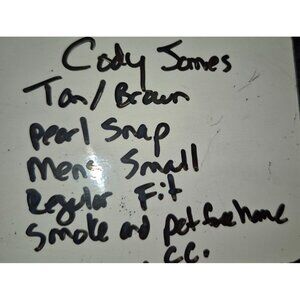 Cody James
Tan/Brown
Pearl Snap
Mens Small
Regular Fit
Smoke and pet free home
C.C.